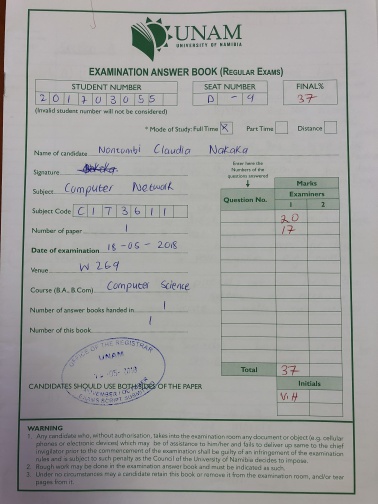 UNAM
UNIVERSITY OF NAMIBIA
EXAMINATION ANSWER BOOK (REGULAR EXAMS)
STUDENT NUMBER SEAT NUMBER FINAL%
201703055 D - 4 37
(Invalid student number will not be considered)
* Mode of Study: Full Time X Part Time Distance
Name of candidate Nontombi Claudia Nakaka
Signature
Enter here the Numbers of the questions answered
Marks
Subject Computer Network
Question No. Examiners
1 2
Subject Code CI73611
20
Number of paper 1 17
Date of examination 18-05-2018
Venue W269
Course (B.A., B.Com) Computer Science
Number of answer books handed in 1
Number of this book 1
OFFICE OF THE REGISTRAR
UNAM
Total 37
CANDIDATES SHOULD USE BOTH SIDES OF THE PAPER
Initials
V.H
WARNING
1. Any candidate who, without authorisation, takes into the examination room any document or object (e.g. cellular
phones or electronic devices) which may be of assistance to him/her and fails to deliver up same to the chief
invigilator prior to the commencement of the examination shall be guilty of an infringement of the examination
rules and is subject to such penalty as the Council of the University of Namibia decides to impose.
2. Rough work may be done in the examination answer book and must be indicated as such.
3. Under no circumstances may a candidate retain this book or remove it from the examination room, and/or tear
pages from it.